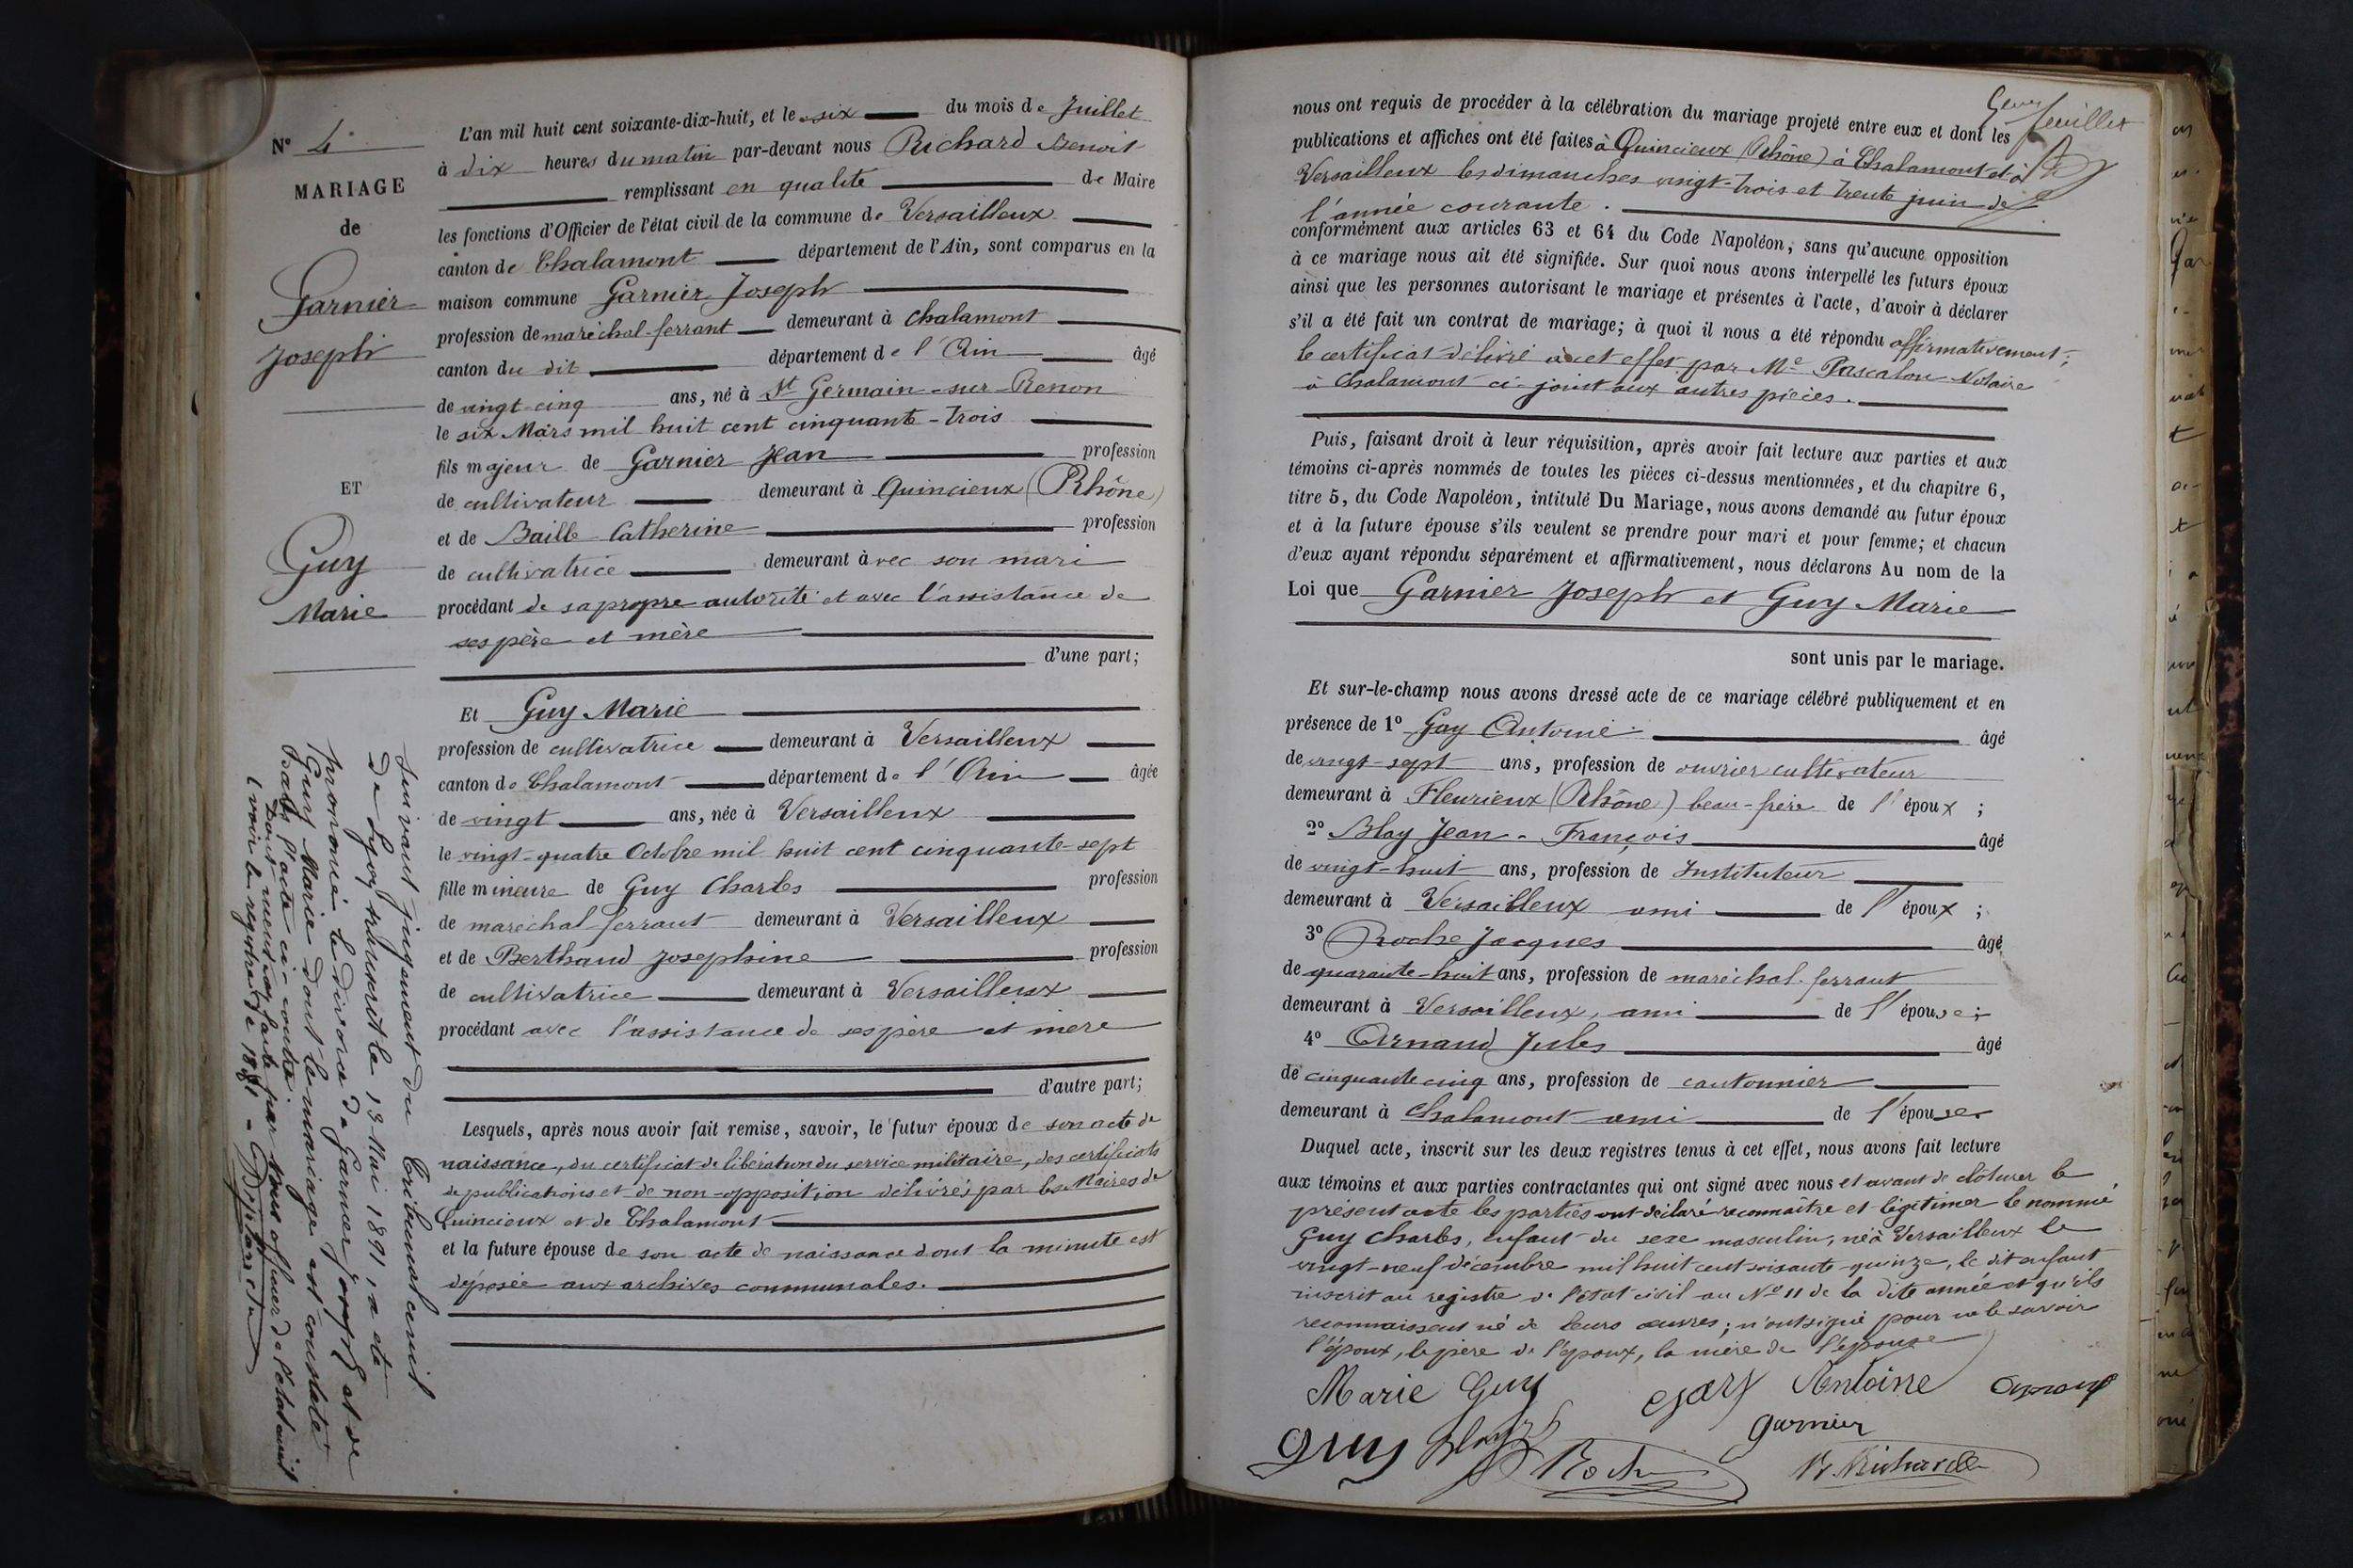 N° 4
MARIAGE
de
Garnier
Joseph
ET
Guy
Marie
Suivant jugement du Tribunal civil
de Lyon transcrit le 13 Mai 1891, a été
prononcé le divorce de Garnier Joseph et de
Guy Marie dont le mariage est constaté
dans l'acte ci-contre.
Dont mention faite par nous officier de l'état civil
(voir le registre de 1891 -
L'an mil huit cent soixante-dix-huit, et le six du mois de Juillet
à dix heures du matin par-devant nous Richard Benoit
remplissant en qualité de Maire
les fonctions d'Officier de l'état civil de la commune de Versailleux
canton de Chalamont département de l'Ain, sont comparus en la
maison commune Garnier Joseph
profession de maréchal-ferrant demeurant à Chalamont
canton du dit département de l'Ain âgé
de vingt-cinq ans, né à St Germain-sur-Renon
le six Mars mil huit cent cinquante-trois
fils majeur de Garnier Jean profession
de cultivateur demeurant à Quincieux (Rhône)
et de Baille Catherine profession
de cultivatrice demeurant avec son mari
procédant de sa propre autorité et avec l'assistance de
ses père et mère
d'une part;
Et Guy Marie
profession de cultivatrice demeurant à Versailleux
canton de Chalamont département de l'Ain âgée
de vingt ans, née à Versailleux
le vingt-quatre Octobre mil huit cent cinquante-sept
fille mineure de Guy Charles profession
de maréchal-ferrant demeurant à Versailleux
et de Berthaud Josephine profession
de cultivatrice demeurant à Versailleux
procédant avec l'assistance de ses père et mère
d'autre part;
Lesquels, après nous avoir fait remise, savoir, le futur époux de son acte de
naissance, du certificat de libération du service militaire, des certificats
de publications et de non-opposition délivrés par les Maires de
Quincieux et de Chalamont
et la future épouse de son acte de naissance dont la minute est
déposée aux archives communales.
feuillet
nous ont requis de procéder à la célébration du mariage projeté entre eux et dont les
publications et affiches ont été faites à Quincieux (Rhône) à Chalamont et à
Versailleux les dimanches vingt-trois et trente juin de
l'année courante.
conformément aux articles 63 et 64 du Code Napoléon, sans qu'aucune opposition
à ce mariage nous ait été signifiée. Sur quoi nous avons interpellé les futurs époux
ainsi que les personnes autorisant le mariage et présentes à l'acte, d'avoir à déclarer
s'il a été fait un contrat de mariage; à quoi il nous a été répondu affirmativement;
le certificat délivré à cet effet par Me Pascalon Notaire
à Chalamont ci-joint aux autres pièces.
Puis, faisant droit à leur réquisition, après avoir fait lecture aux parties et aux
témoins ci-après nommés de toutes les pièces ci-dessus mentionnées, et du chapitre 6,
titre 5, du Code Napoléon, intitulé Du Mariage, nous avons demandé au futur époux
et à la future épouse s'ils veulent se prendre pour mari et pour femme; et chacun
d'eux ayant répondu séparément et affirmativement, nous déclarons Au nom de la
Loi que Garnier Joseph et Guy Marie
sont unis par le mariage.
Et sur-le-champ nous avons dressé acte de ce mariage célébré publiquement et en
présence de 1° Gay Antoine âgé
de vingt-sept ans, profession de ouvrier cultivateur
demeurant à Fleurieux (Rhône) beau-frère de l'époux;
2° Blay Jean-François âgé
de vingt-huit ans, profession de Instituteur
demeurant à Versailleux ami de l'époux;
3° Roche Jacques âgé
de quarante-huit ans, profession de maréchal-ferrant
demeurant à Versailleux, ami de l'épouse;
4° Arnaud Jules âgé
de cinquante cinq ans, profession de cantonnier
demeurant à Chalamont ami de l'épouse
Duquel acte, inscrit sur les deux registres tenus à cet effet, nous avons fait lecture
aux témoins et aux parties contractantes qui ont signé avec nous et avant de clôturer le
présent acte les parties ont déclaré reconnaître et légitimer le nommé
Guy Charles, enfant du sexe masculin, né à Versailleux le
vingt-neuf décembre mil huit cent soixante-quinze, le dit enfant
inscrit au registre de l'état civil au N° 11 de la dite année et qu'ils
reconnaissent né de leurs œuvres; n'ont signé pour ne le savoir
l'époux, le père de l'époux, la mère de l'épouse
Marie Guy Gay Antoine Arnaud
Garnier
Guy Blay Roche B. Richard